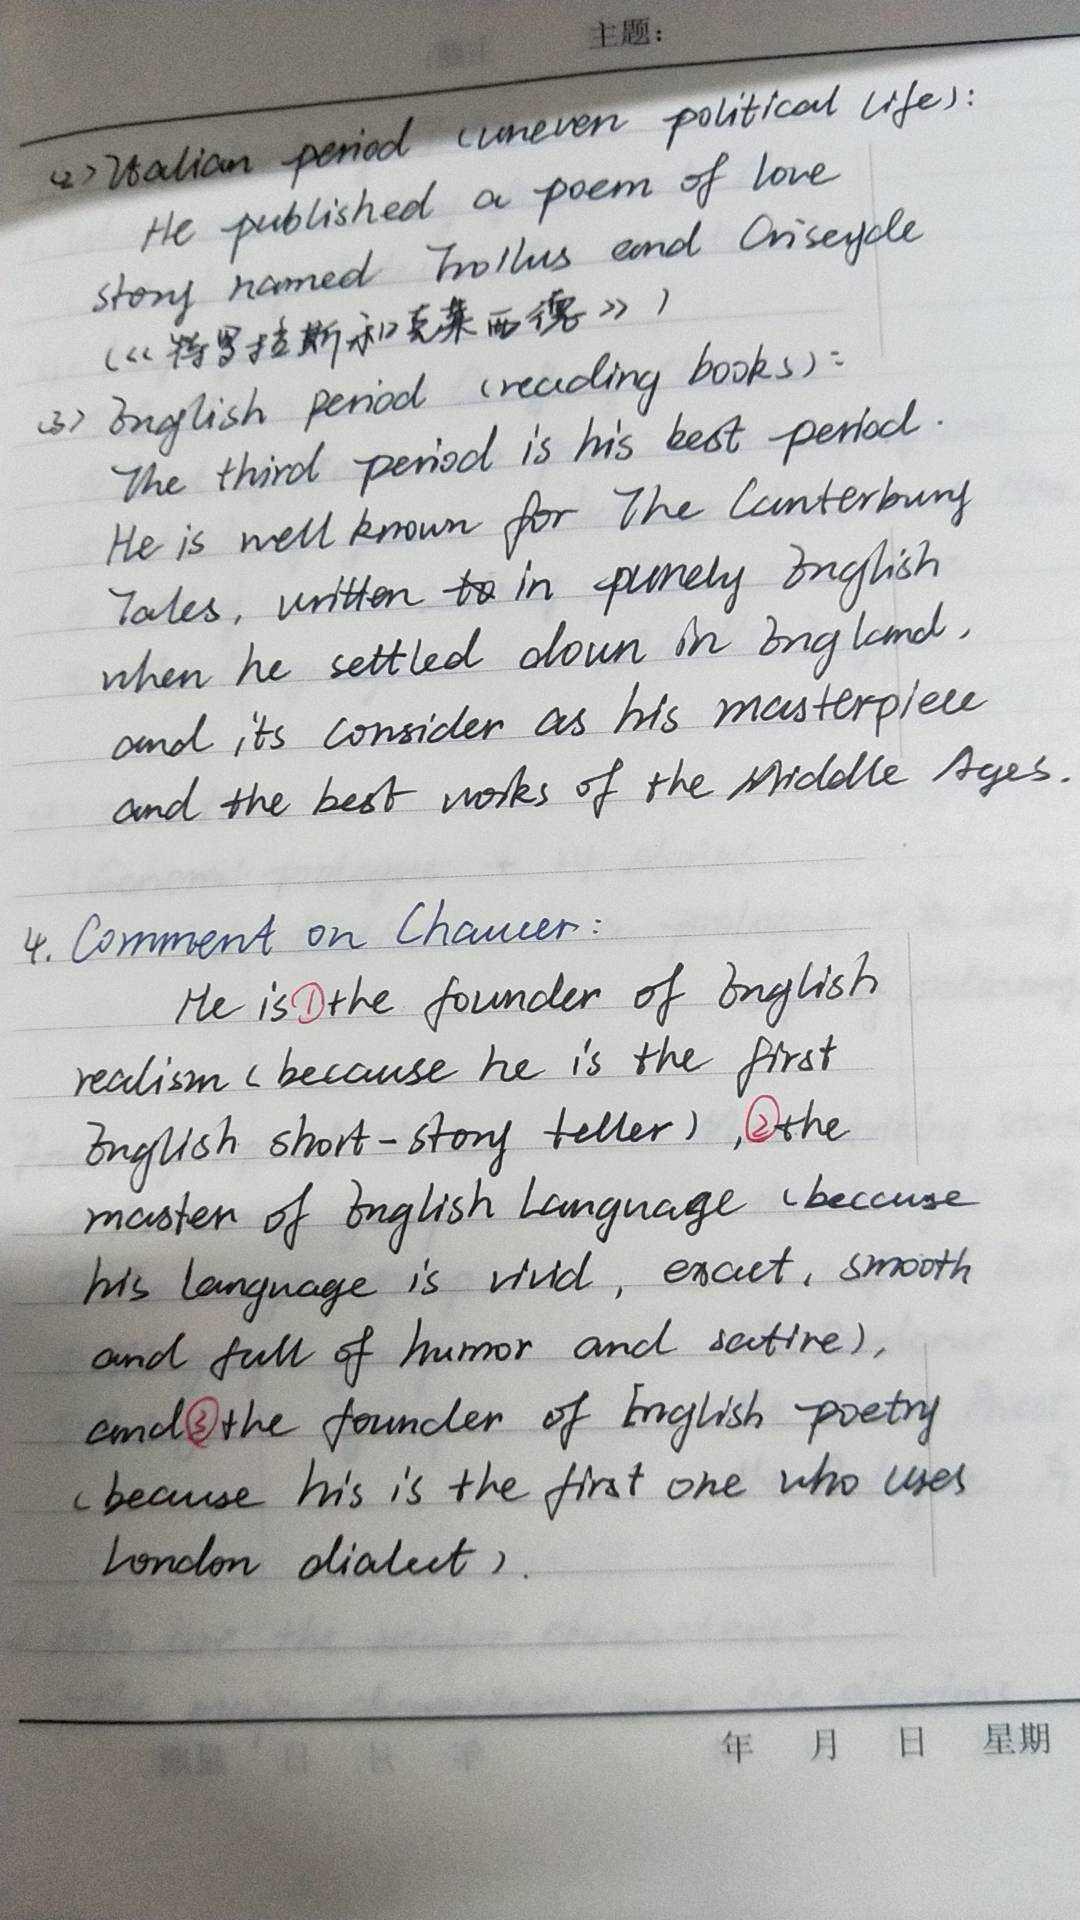 主题:
(2) Italian period (uneven political life):
He published a poem of love
story named Troilus and Criseyde
(《特罗拉斯和克莱西德》)
(3) English period (reading books):
The third period is his best period.
He is well known for The Canterbury
Tales, written to in purely English
when he settled down in England,
and its consider as his masterpiece
and the best works of the Middle Ages.
4. Comment on Chaucer:
He is ① the founder of English
realism (because he is the first
English short-story teller), ② the
master of English language (because
his language is vivid, exact, smooth
and full of humor and satire),
and ③ the founder of English poetry
(because his is the first one who uses
London dialect).
年 月 日 星期